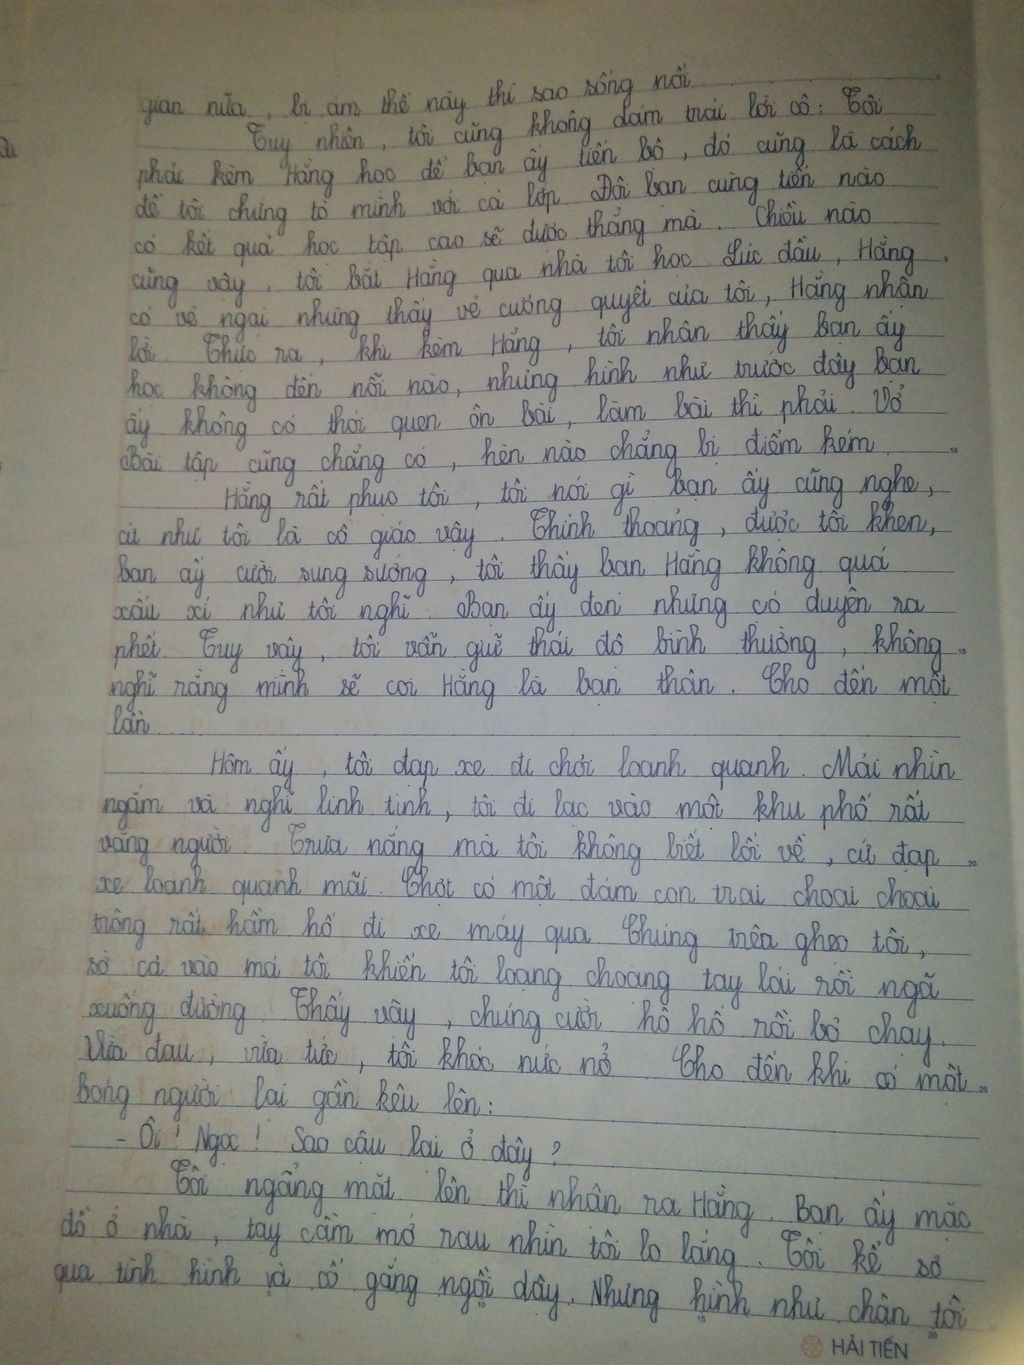 gian nữa, bị ám thế này thì sao sống nổi
Tuy nhiên, tôi cũng không dám trái lời cô: Tôi
phải kèm Hằng học để bạn ấy tiến bộ, đó cũng là cách
để tôi chứng tỏ mình với cả lớp Đôi bạn cùng tiến nào
có kết quả học tập cao sẽ được thắng mà. Chiều nào
cũng vậy, tôi bắt Hằng qua nhà tôi học Lúc đầu, Hằng
có vẻ ngại nhưng thấy vẻ cương quyết của tôi, Hằng nhận
lời. Thực ra, khi kèm Hằng, tôi nhận thấy bạn ấy
học không đến nỗi nào, nhưng hình như trước đây bạn
ấy không có thói quen ôn bài, làm bài thì phải. Vở
Bài tập cũng chẳng có, hèn nào chẳng bị điểm kém.
Hằng rất phục tôi, tôi nói gì bạn ấy cũng nghe,
cứ như tôi là cô giáo vậy. Thỉnh thoảng, được tôi khen,
bạn ấy cười sung sướng, tôi thấy bạn Hằng không quá
xấu xí như tôi nghĩ. Bạn ấy đen nhưng có duyên ra
phết. Tuy vậy, tôi vẫn giữ thái độ bình thường, không
nghĩ rằng mình sẽ coi Hằng là bạn thân. Cho đến một
lần
Hôm ấy, tôi đạp xe đi chơi loanh quanh. Mải nhìn
ngắm và nghĩ linh tinh, tôi đi lạc vào một khu phố rất
vắng người. Trưa nắng mà tôi không biết lối về, cứ đạp
xe loanh quanh mãi. Chợt có một đám con trai choai choai
trông rất hầm hố đi xe máy qua Chúng trêu ghẹo tôi,
sờ cả vào má tôi khiến tôi loạng choạng tay lái rồi ngã
xuống đường. Thấy vậy, chúng cười hô hố rồi bỏ chạy.
Vừa đau, vừa tức, tôi khóc nức nở. Cho đến khi có một
bóng người lại gần kêu lên:
- Ôi! Ngọc! Sao cậu lại ở đây?
Tôi ngẩng mặt lên thì nhận ra Hằng. Bạn ấy mặc
đồ ở nhà, tay cầm mớ rau nhìn tôi lo lắng. Tôi kể sơ
qua tình hình và cố gắng ngồi dậy. Nhưng hình như chân tôi
HẢI TIẾN